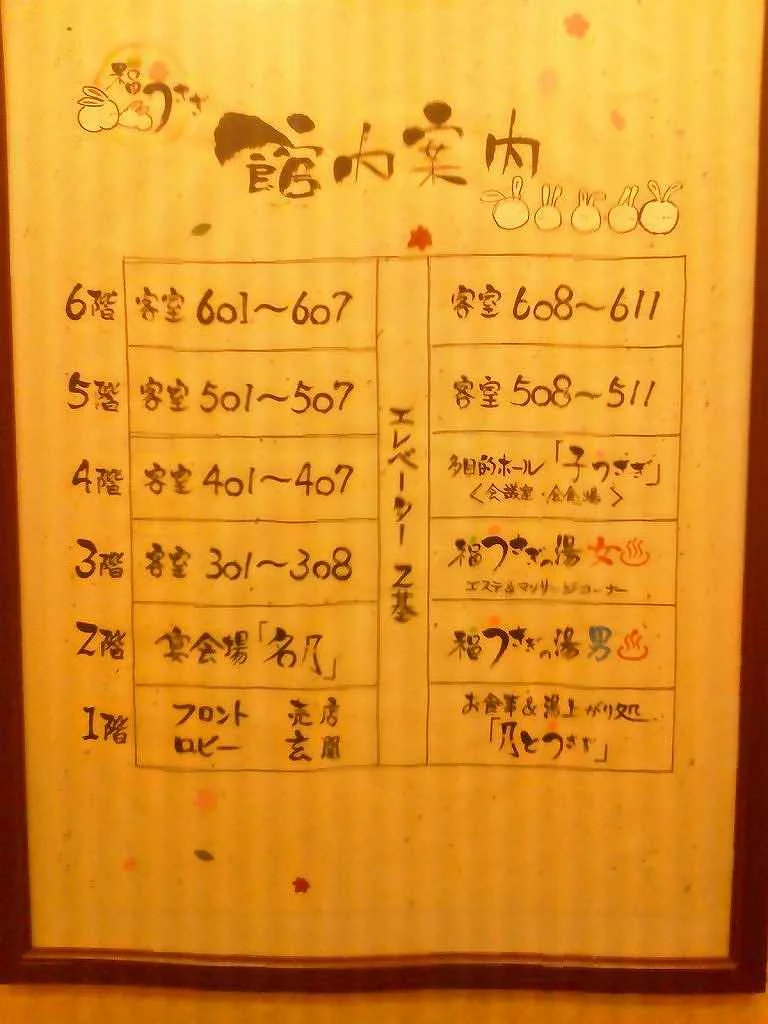 福うさぎ
館内案内
6階 客室 601～607 客室 608～611
5階 客室 501～507 客室 508～511
4階 客室 401～407 多目的ホール「子うさぎ」
＜会議室・会食場＞
3階 客室 301～308 福うさぎの湯 女♨
エステ&マッサージコーナー
エレベーター 2基
2階 宴会場「名月」 福うさぎの湯 男♨
1階 フロント 売店 お食事&湯上がり処
ロビー 玄関 「月とうさぎ」